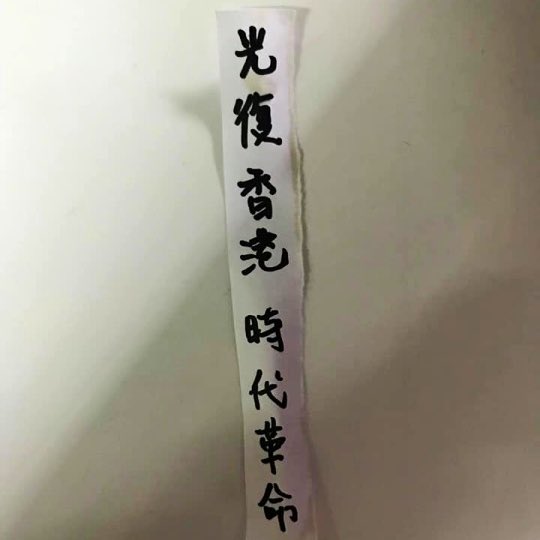 光復香港 時代革命